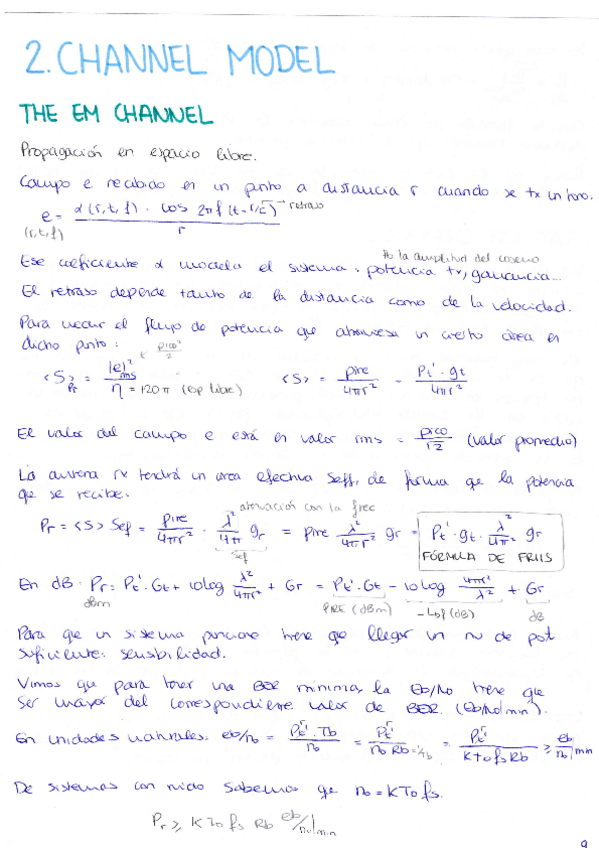 2. CHANNEL MODEL
THE EM CHANNEL
Propagación en espacio libre.
Campo e recibido en un punto a distancia r cuando se tx un tono.
e = α(r,t,f) · cos 2πf (t-r/c) → retraso
(r,t,f) r
No la amplitud del coseno
Ese coeficiente α modela el sistema: potencia tx, ganancia...
El retraso depende tanto de la distancia como de la velocidad.
Para el flujo de potencia que atraviesa un cierto área en
dicho punto: pico²/2
<S> = |e|²rms / η = 120π (esp libre) <S> = pire / 4πr² = Pt' · gt / 4πr²
Pr
El valor del campo e está en valor rms = pico/√2 (valor promedio)
La antena rx tendrá un area efectiva Seff, de forma que la potencia
que se recibe:
atenuación con la frec
Pr = <S> Sef = pire/4πr² · λ²/4π gr = pire λ²/4πr² gr = Pt' · gt · λ²/4πr² gr
Sef FÓRMULA DE FRIIS
En dB: Pr = Pt' · Gt + 10log λ²/4πr² + Gr = Pt' · Gt - 10log 4πr²/λ² + Gr
dBm PIRE (dBm) - Lbf (dB) dB
Para que un sistema funcione tiene que llegar un niv de pot
suficiente: sensibilidad.
Vimos que para tener una BER mínima, la Eb/No tiene que
ser mayor del correspondiente valor de BER. (Eb/No|min).
En unidades naturales: eb/no = Pt'r · Tb / no = Pt'r / no Rb = 1/Tb = Pt'r / KTo fs Rb ≥ eb/no |min
De sistemas con ruido sabemos que no = KTo fs.
Pr ≥ KTo fs Rb eb/no|min
9